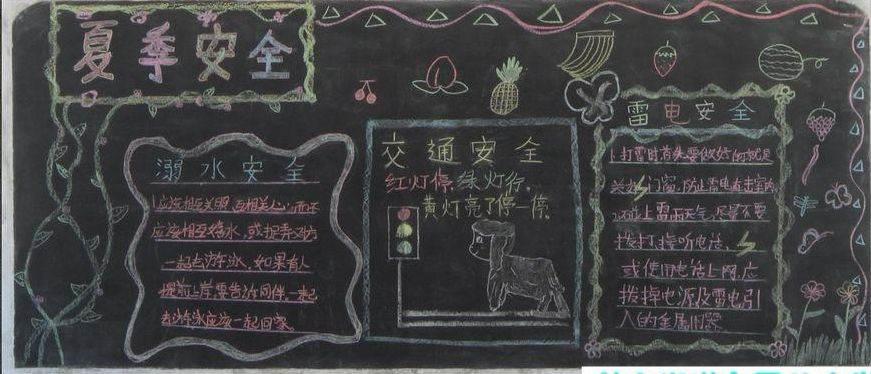 夏季安全
溺水安全
1.应该相互关照,互相关心,而不
应该相互 水,或 对方
一起去游泳,如果有人
提前上岸要告诉同伴,一起
去游泳应该一起回家。
交通安全
红灯停,绿灯行,
黄灯亮了停一停。
雷电安全
1.打雷时首先要做好的就是
关好门窗,防止雷电直击室内
2.在遇上雷雨天气,尽量不要
拨打接听电话,
或使用电话上网,应
拨掉电源及雷电引
入的金属